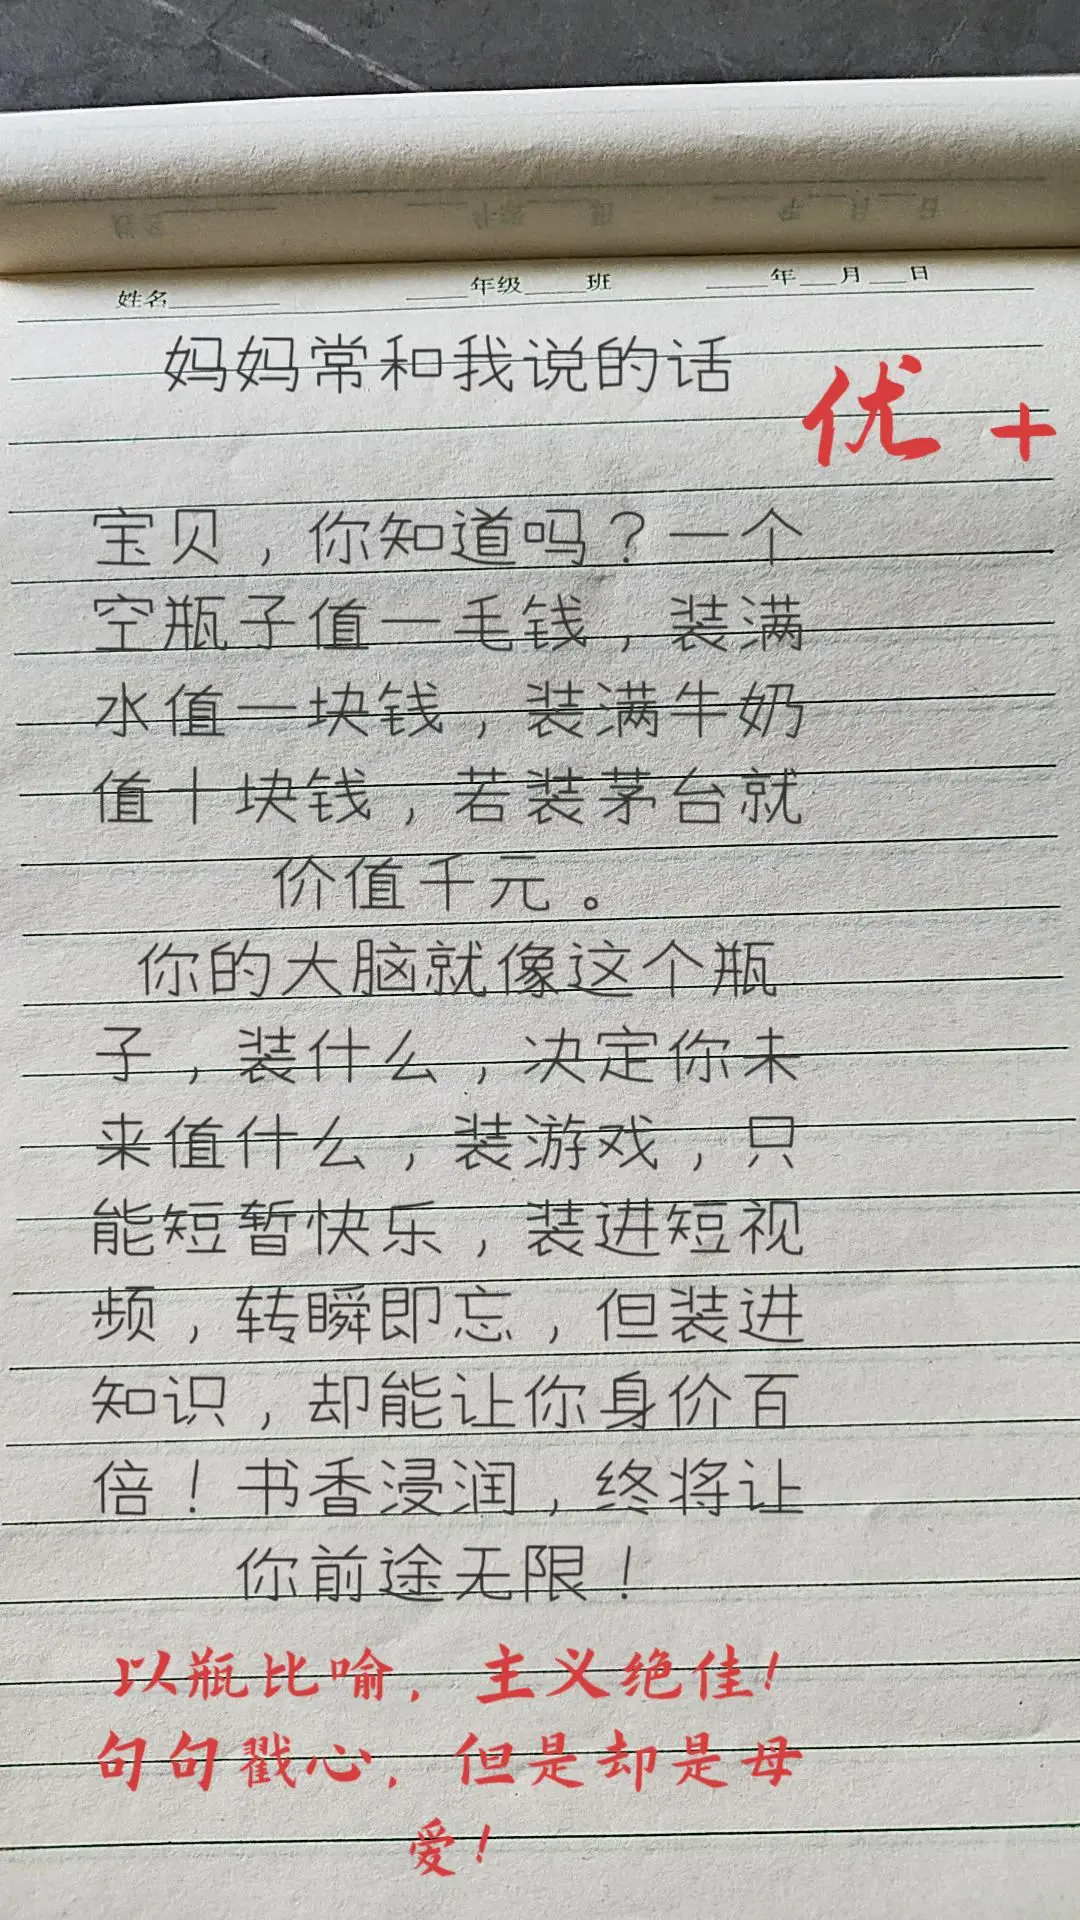 姓名________ ____年级____班 ____年___月___日
妈妈常和我说的话
优+
宝贝，你知道吗？一个
空瓶子值一毛钱，装满
水值一块钱，装满牛奶
值十块钱，若装茅台就
价值千元。
你的大脑就像这个瓶
子，装什么，决定你未
来值什么，装游戏，只
能短暂快乐，装进短视
频，转瞬即忘，但装进
知识，却能让你身价百
倍！书香浸润，终将让
你前途无限！
以瓶比喻，主义绝佳！
句句戳心，但是却是母
爱！